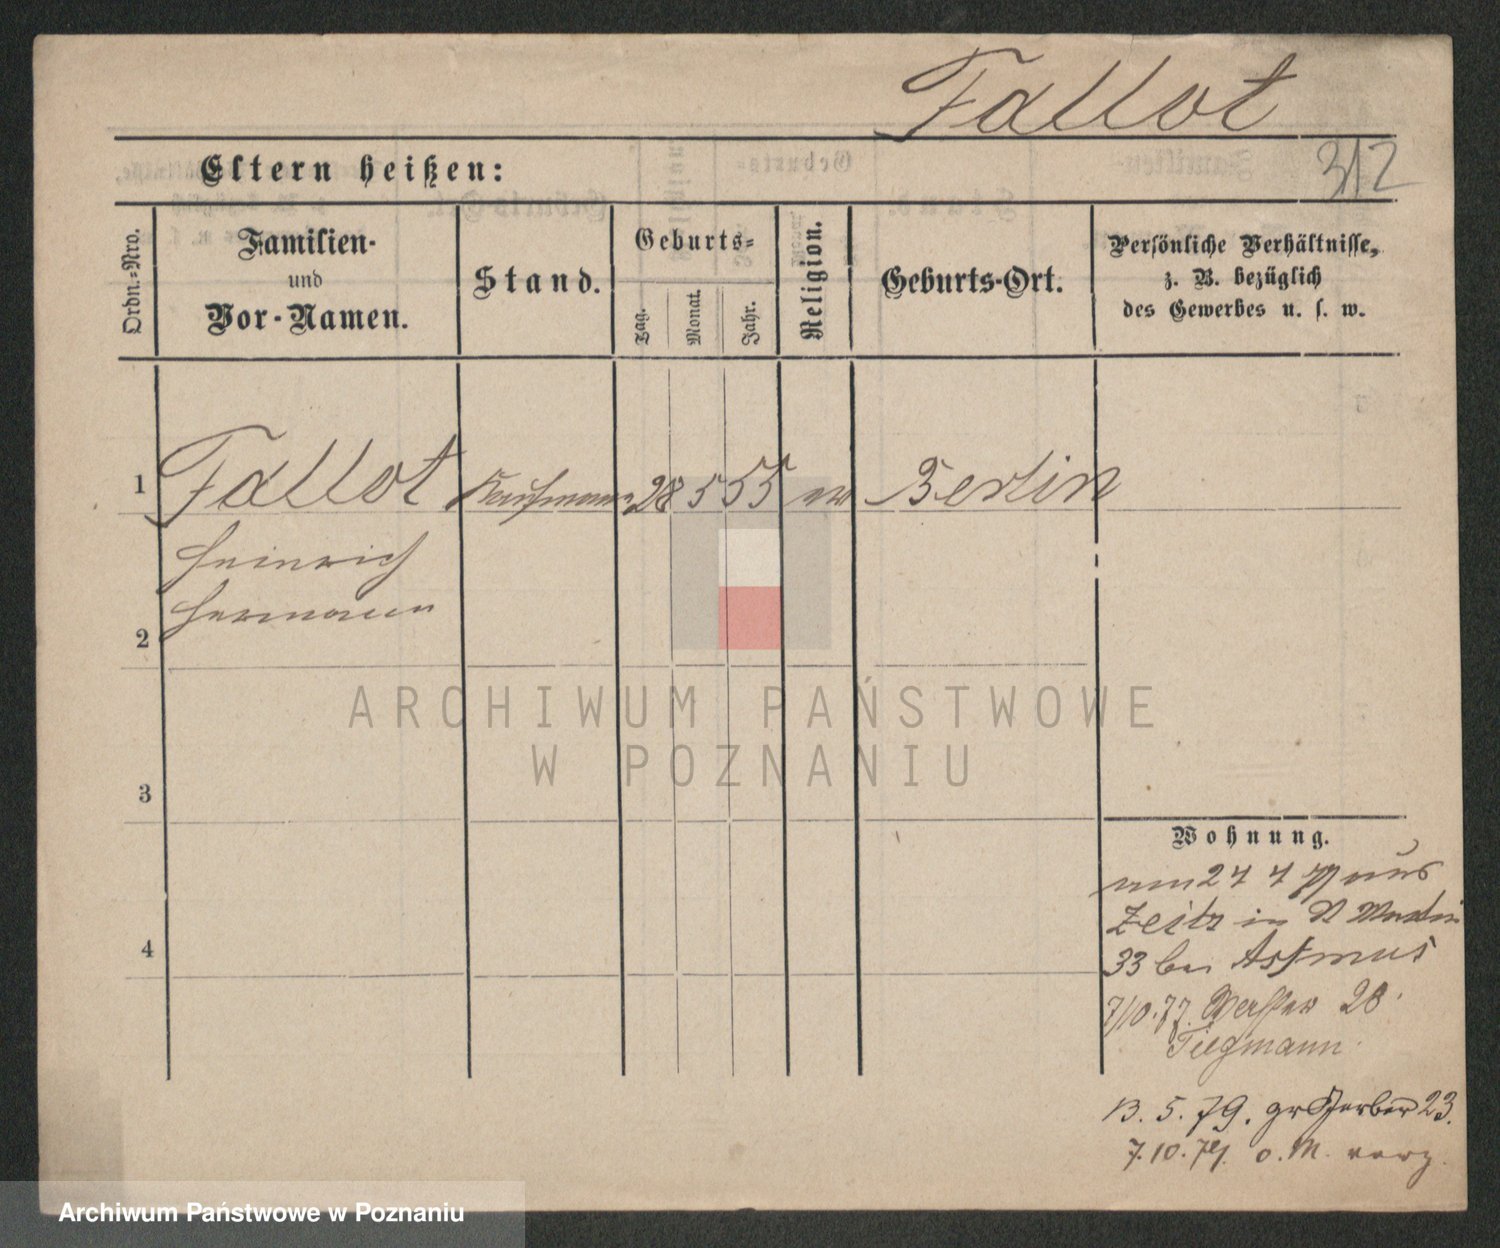 Fallot
Eltern heißen:
312
Ordn.-Nro.
Familien-
und
Vor-Namen.
Stand.
Geburts-
Tag.
Monat.
Jahr.
Religion.
Geburts-Ort.
Persönliche Verhältnisse,
z. B. bezüglich
des Gewerbes u. s. w.
1 Fallot Kaufmann 28 5 55 ev Berlin
Heinrich
Hermann
2
ARCHIWUM PAŃSTWOWE
W POZNANIU
3
Wohnung.
24 4 77 aus
Zeitz in St Martin
33 bei Assmus
4
7/10.77. 28
Tiegmann
13. 5. 79. gr Gerber 23.
7.10.79. o. M. verz.
Archiwum Państwowe w Poznaniu